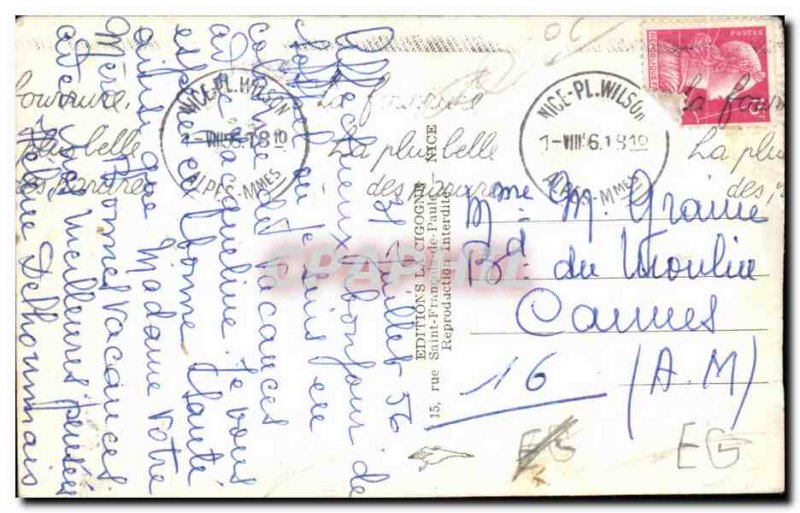 31 Juillet 56
Affectueux bonjour de
Nice où je suis en
vacances
avec Jacqueline. Je vous
espère en bonne santé
ainsi que Madame votre
Mère. Bonnes Vacances
avec mes meilleures pensées
Hélène Delhoumais
EDITIONS LA CIGOGNE
15, rue Saint-François-de-Paule - NICE
Reproduction interdite
NICE-PL. WILSON
1-VIII 56.18 10
ALPES-MMES
La fourrure,
La plus belle
des parures
NICE-PL. WILSON
1-VIII 56.18 10
ALPES-MMES
La fourrure,
La plus belle
des parures
Mme M. Graine
Bd du Moulin
Cannes
16
(A.M)
EG
EG
CPAPHIL